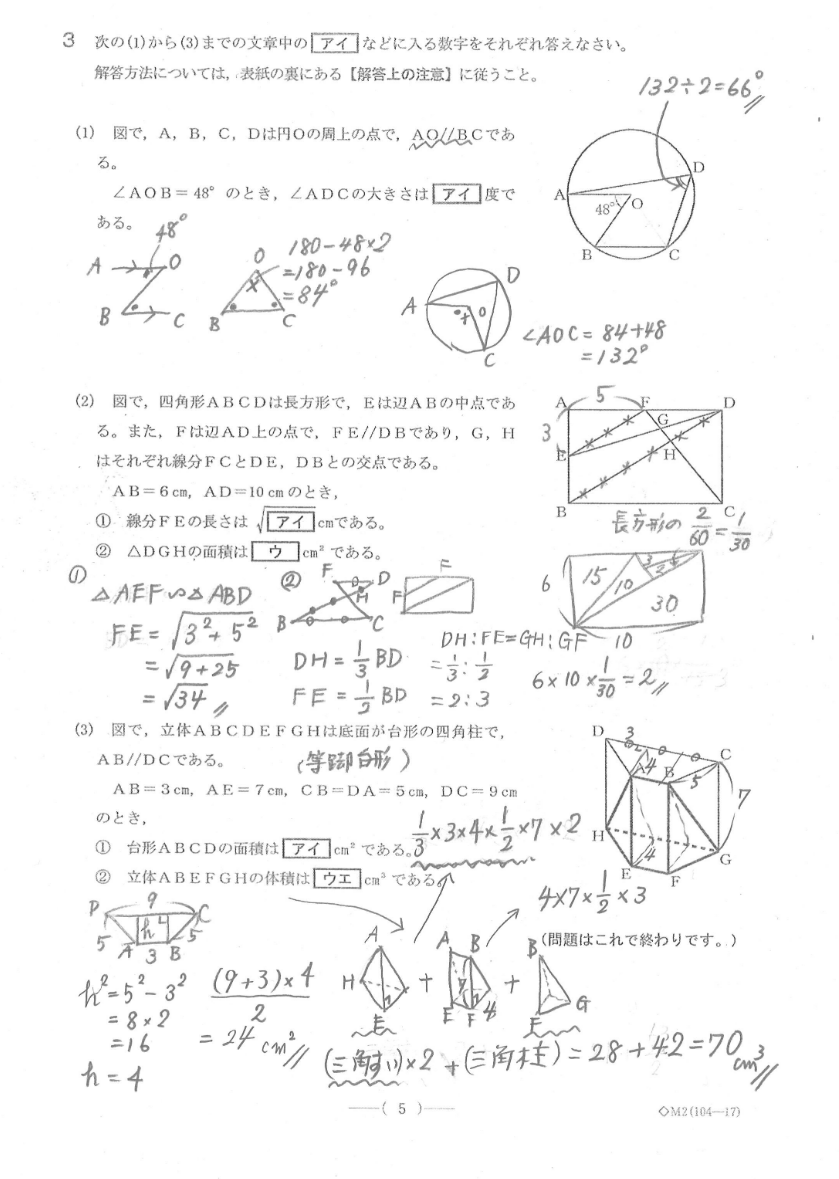 3 次の(1)から(3)までの文章中の アイ などに入る数字をそれぞれ答えなさい。
解答方法については,表紙の裏にある【解答上の注意】に従うこと。
132÷2=66°
(1) 図で,A,B,C,Dは円Oの周上の点で,AO//BCであ
る。
∠AOB=48° のとき,∠ADCの大きさは アイ 度で
ある。
A D 48° O B C
48°
A O
B C
O
B C
180-48×2
=180-96
=84°
A D O C
∠AOC=84+48
=132°
(2) 図で,四角形ABCDは長方形で,Eは辺ABの中点であ
る。また,Fは辺AD上の点で,FE//DBであり,G,H
はそれぞれ線分FCとDE,DBとの交点である。
AB=6cm,AD=10cmのとき,
① 線分FEの長さは √アイ cmである。
② △DGHの面積は ウ cm² である。
A 5 F D
3 G
E H
B C
長方形の 2/60=1/30
①
△AEF∽△ABD
FE=√3²+5²
=√9+25
=√34
②
F D
H
B C
F
F
DH=1/3BD
FE=1/2BD
DH:FE=GH:GF
=1/3:1/2
=2:3
6 15 10 3 2 30
10
6×10×1/30=2
(3) 図で,立体ABCDEFGHは底面が台形の四角柱で,
AB//DCである。
(等脚台形)
AB=3cm,AE=7cm,CB=DA=5cm,DC=9cm
のとき,
① 台形ABCDの面積は アイ cm² である。
② 立体ABEFGHの体積は ウエ cm³ である。
1/3×3×4×1/2×7×2
D 3 C
A 4 B 5
7
H G
E 4 F
4×7×1/2×3
(問題はこれで終わりです。)
9
D C
5 h 5
A 3 B
h²=5²-3²
=8×2
=16
h=4
(9+3)×4/2
=24cm²
A H E
+
A B 7 4 E F
+
B G F
(三角すい)×2+(三角柱)=28+42=70cm³
( 5 )
◇M2(104—17)